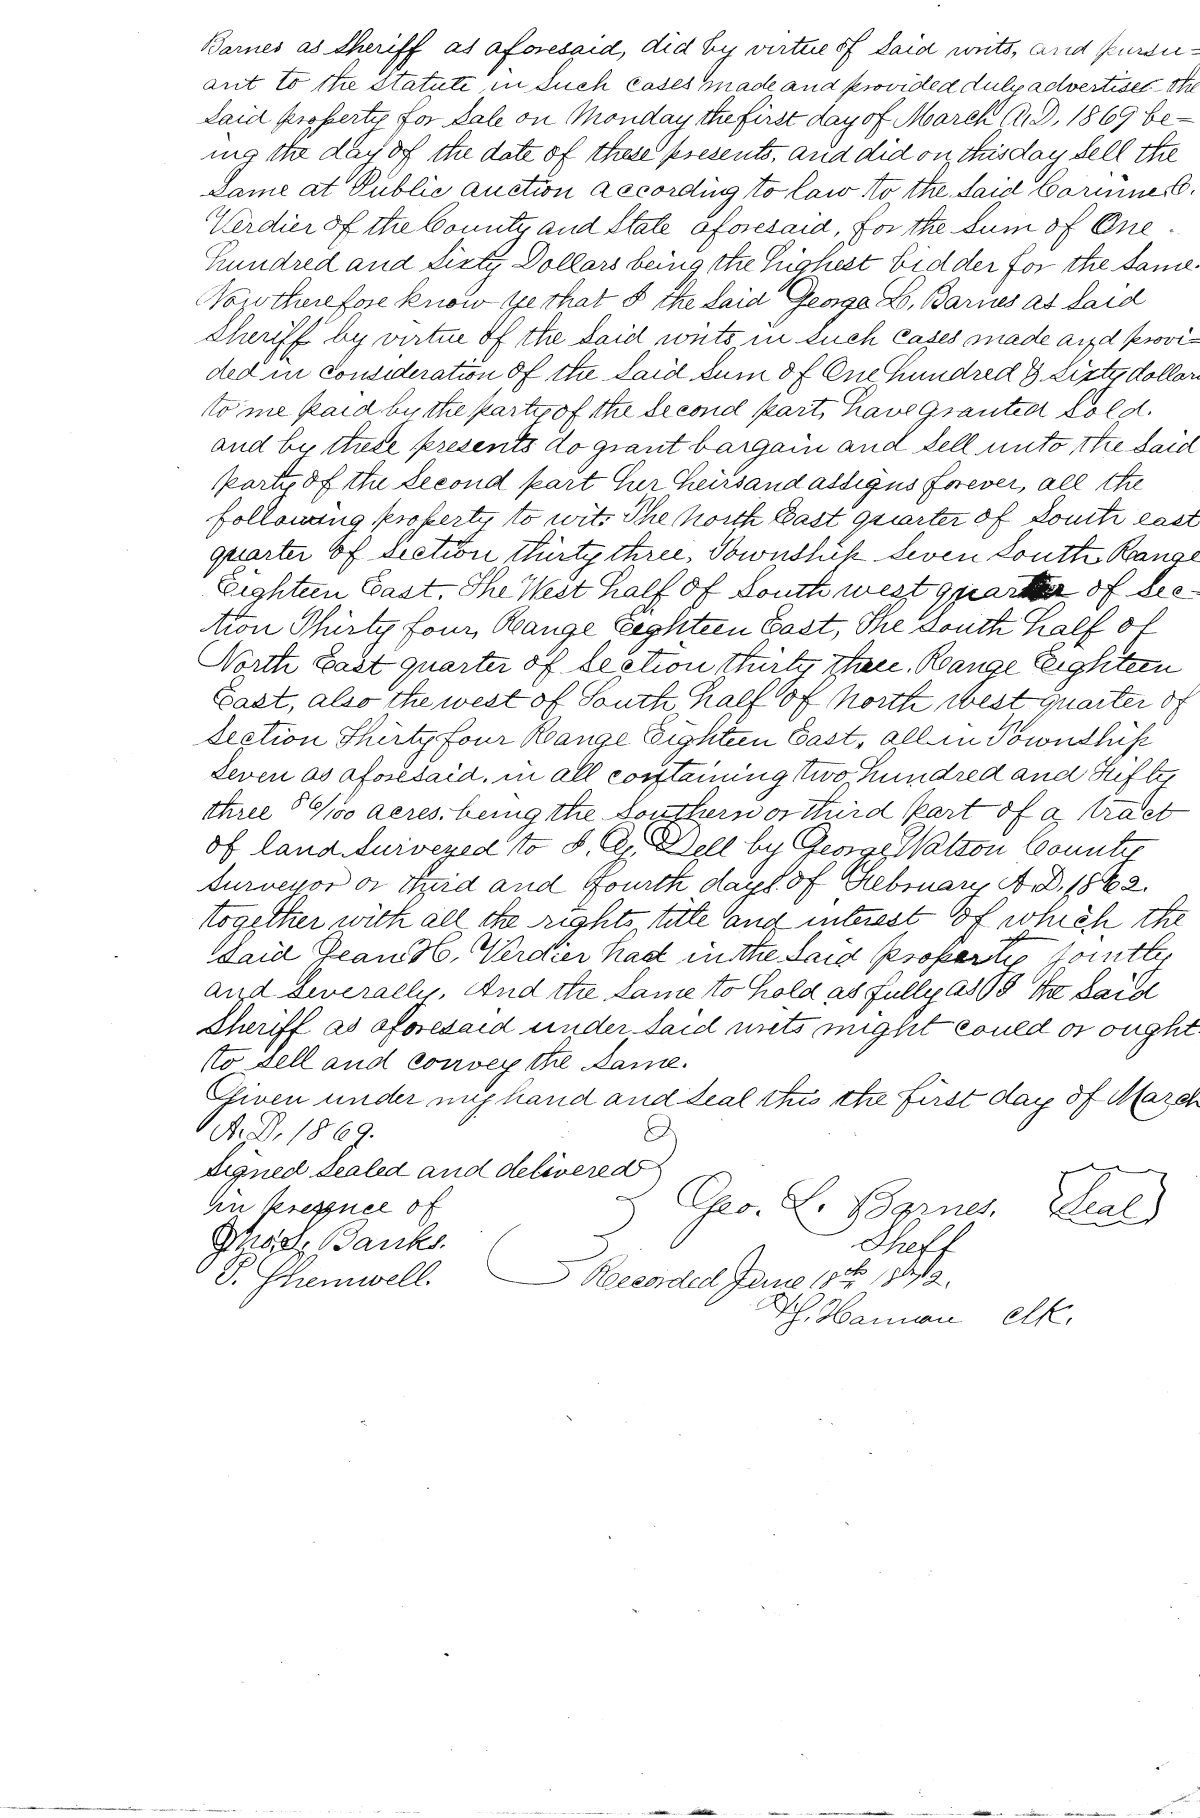 Barnes as Sheriff as aforesaid, did by virtue of Said writs, and pursu=
ant to the Statute in Such cases made and provided duly advertised the
Said property for Sale on Monday the first day of March A.D. 1869 be=
ing the day of the date of these presents, and did on this day Sell the
Same at Public auction according to law to the Said Corinne C.
Verdier of the County and State aforesaid, for the Sum of One
hundred and Sixty Dollars being the highest bidder for the Same.
Now therefore know ye that I the Said George L. Barnes as Said
Sheriff by virtue of the Said writs in Such Cases made and provi=
ded in consideration of the Said Sum of One hundred & Sixty dollars
to me paid by the party of the Second part, have granted Sold.
and by these presents do grant bargain and Sell unto the Said
party of the Second part her heirs and assigns forever, all the
following property to wit: The North East quarter of South east
quarter of Section thirty three, Township Seven South Range
Eighteen East. The West half of South west quarter of Sec-
tion Thirty four, Range Eighteen East, The South half of
North East quarter of Section thirty three. Range Eighteen
East, also the west of South half of North west quarter of
Section Thirty four Range Eighteen East, all in Township
Seven as aforesaid. in all containing two hundred and Fifty
three 86/100 acres. being the Southern or third part of a tract
of land Surveyed to Dell by George Watson County
Surveyor or third and fourth days of February A.D. 1862.
together with all the rights, title and interest of which the
Said Jean H. Verdier had in the Said property jointly
and Severally. And the Same to hold as fully as I the Said
Sheriff as aforesaid under Said writs might could or ought
to Sell and convey the Same.
Given under my hand and Seal this the first day of March
A.D. 1869.
Signed Sealed and delivered
in presence of
Geo. L. Barnes. Seal
Banks. Sheff
P. Shemwell. Recorded June 18th
Hannon clk.